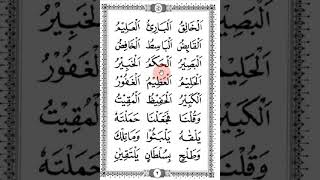 اَلْخَالِقُ اَلْبَارِئُ اَلْعَلِيْمُ
اَلْقَابِضُ اَلْبَاسِطُ اَلْخَافِضُ
اَلْبَصِيْرُ اَلْحَكَمُ اَلْخَبِيْرُ
اَلْحَلِيْمُ اَلْعَظِيْمُ اَلْغَفُوْرُ
اَلْكَبِيْرُ اَلْحَفِيْظُ اَلْمُقِيْتُ
وَقُلْنَا فَجَعَلْنَا حَمَلَتْهُ
وَطَلْحٍ بِسُلْطَانٍ يَلْتَقِيَنِ